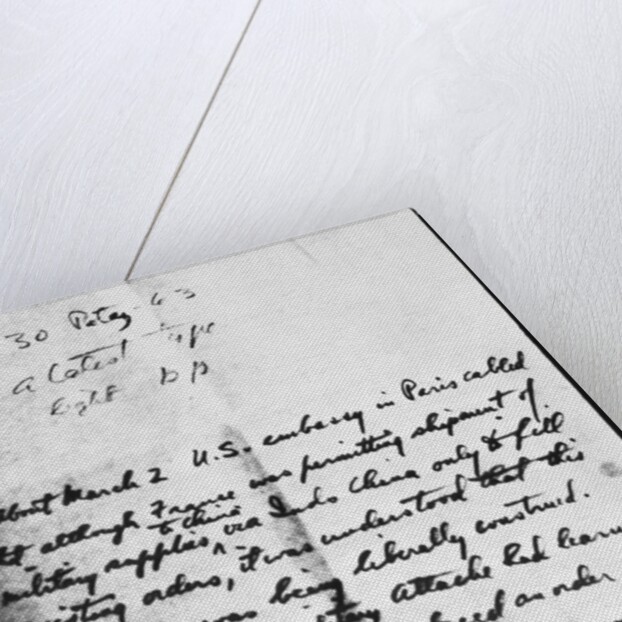 30
a latest type
Eight
about March 2 U.S. embassy in Paris cabled
although France was permitting shipment of
to China
military supplies, via Indo China only to fill
existing orders, it was understood that this
was being liberally construed.
attache had learn
an order